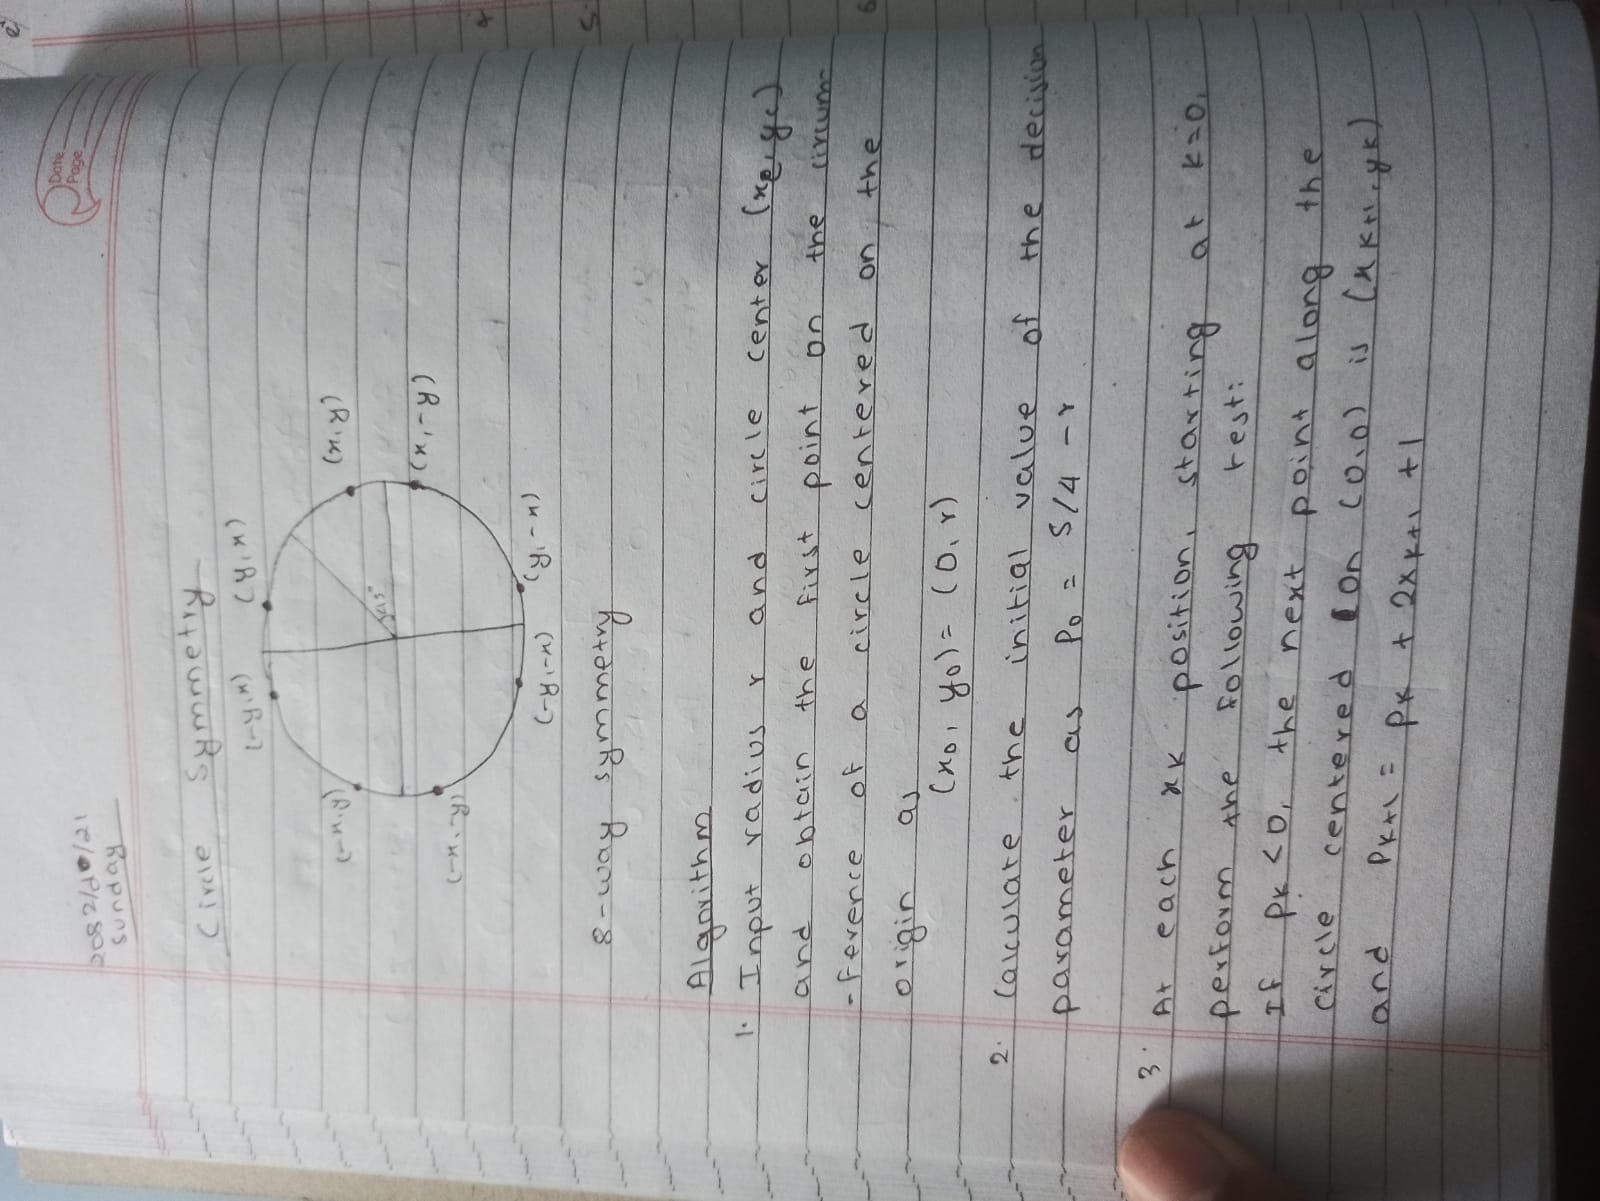 Date
Page
Sunday
Circle Symmetry
(-y,x) (y,x)
(-x,y) (x,y)
45°
(-x,-y) (x,-y)
(-y,-x) (y,-x)
8-way symmetry
Algorithm
1. Input radius r and circle center (xc,yc)
and obtain the first point on the circum
-ference of a circle centered on the
origin as
(x0, y0) = (0, r)
2. Calculate the initial value of the decision
parameter as P0 = 5/4 - r
3. At each xk position, starting at k=0,
perform the following test:
If Pk <0, the next point along the
circle centered on (0,0) is (xk+1, yk)
and Pk+1 = Pk + 2xk+1 +1